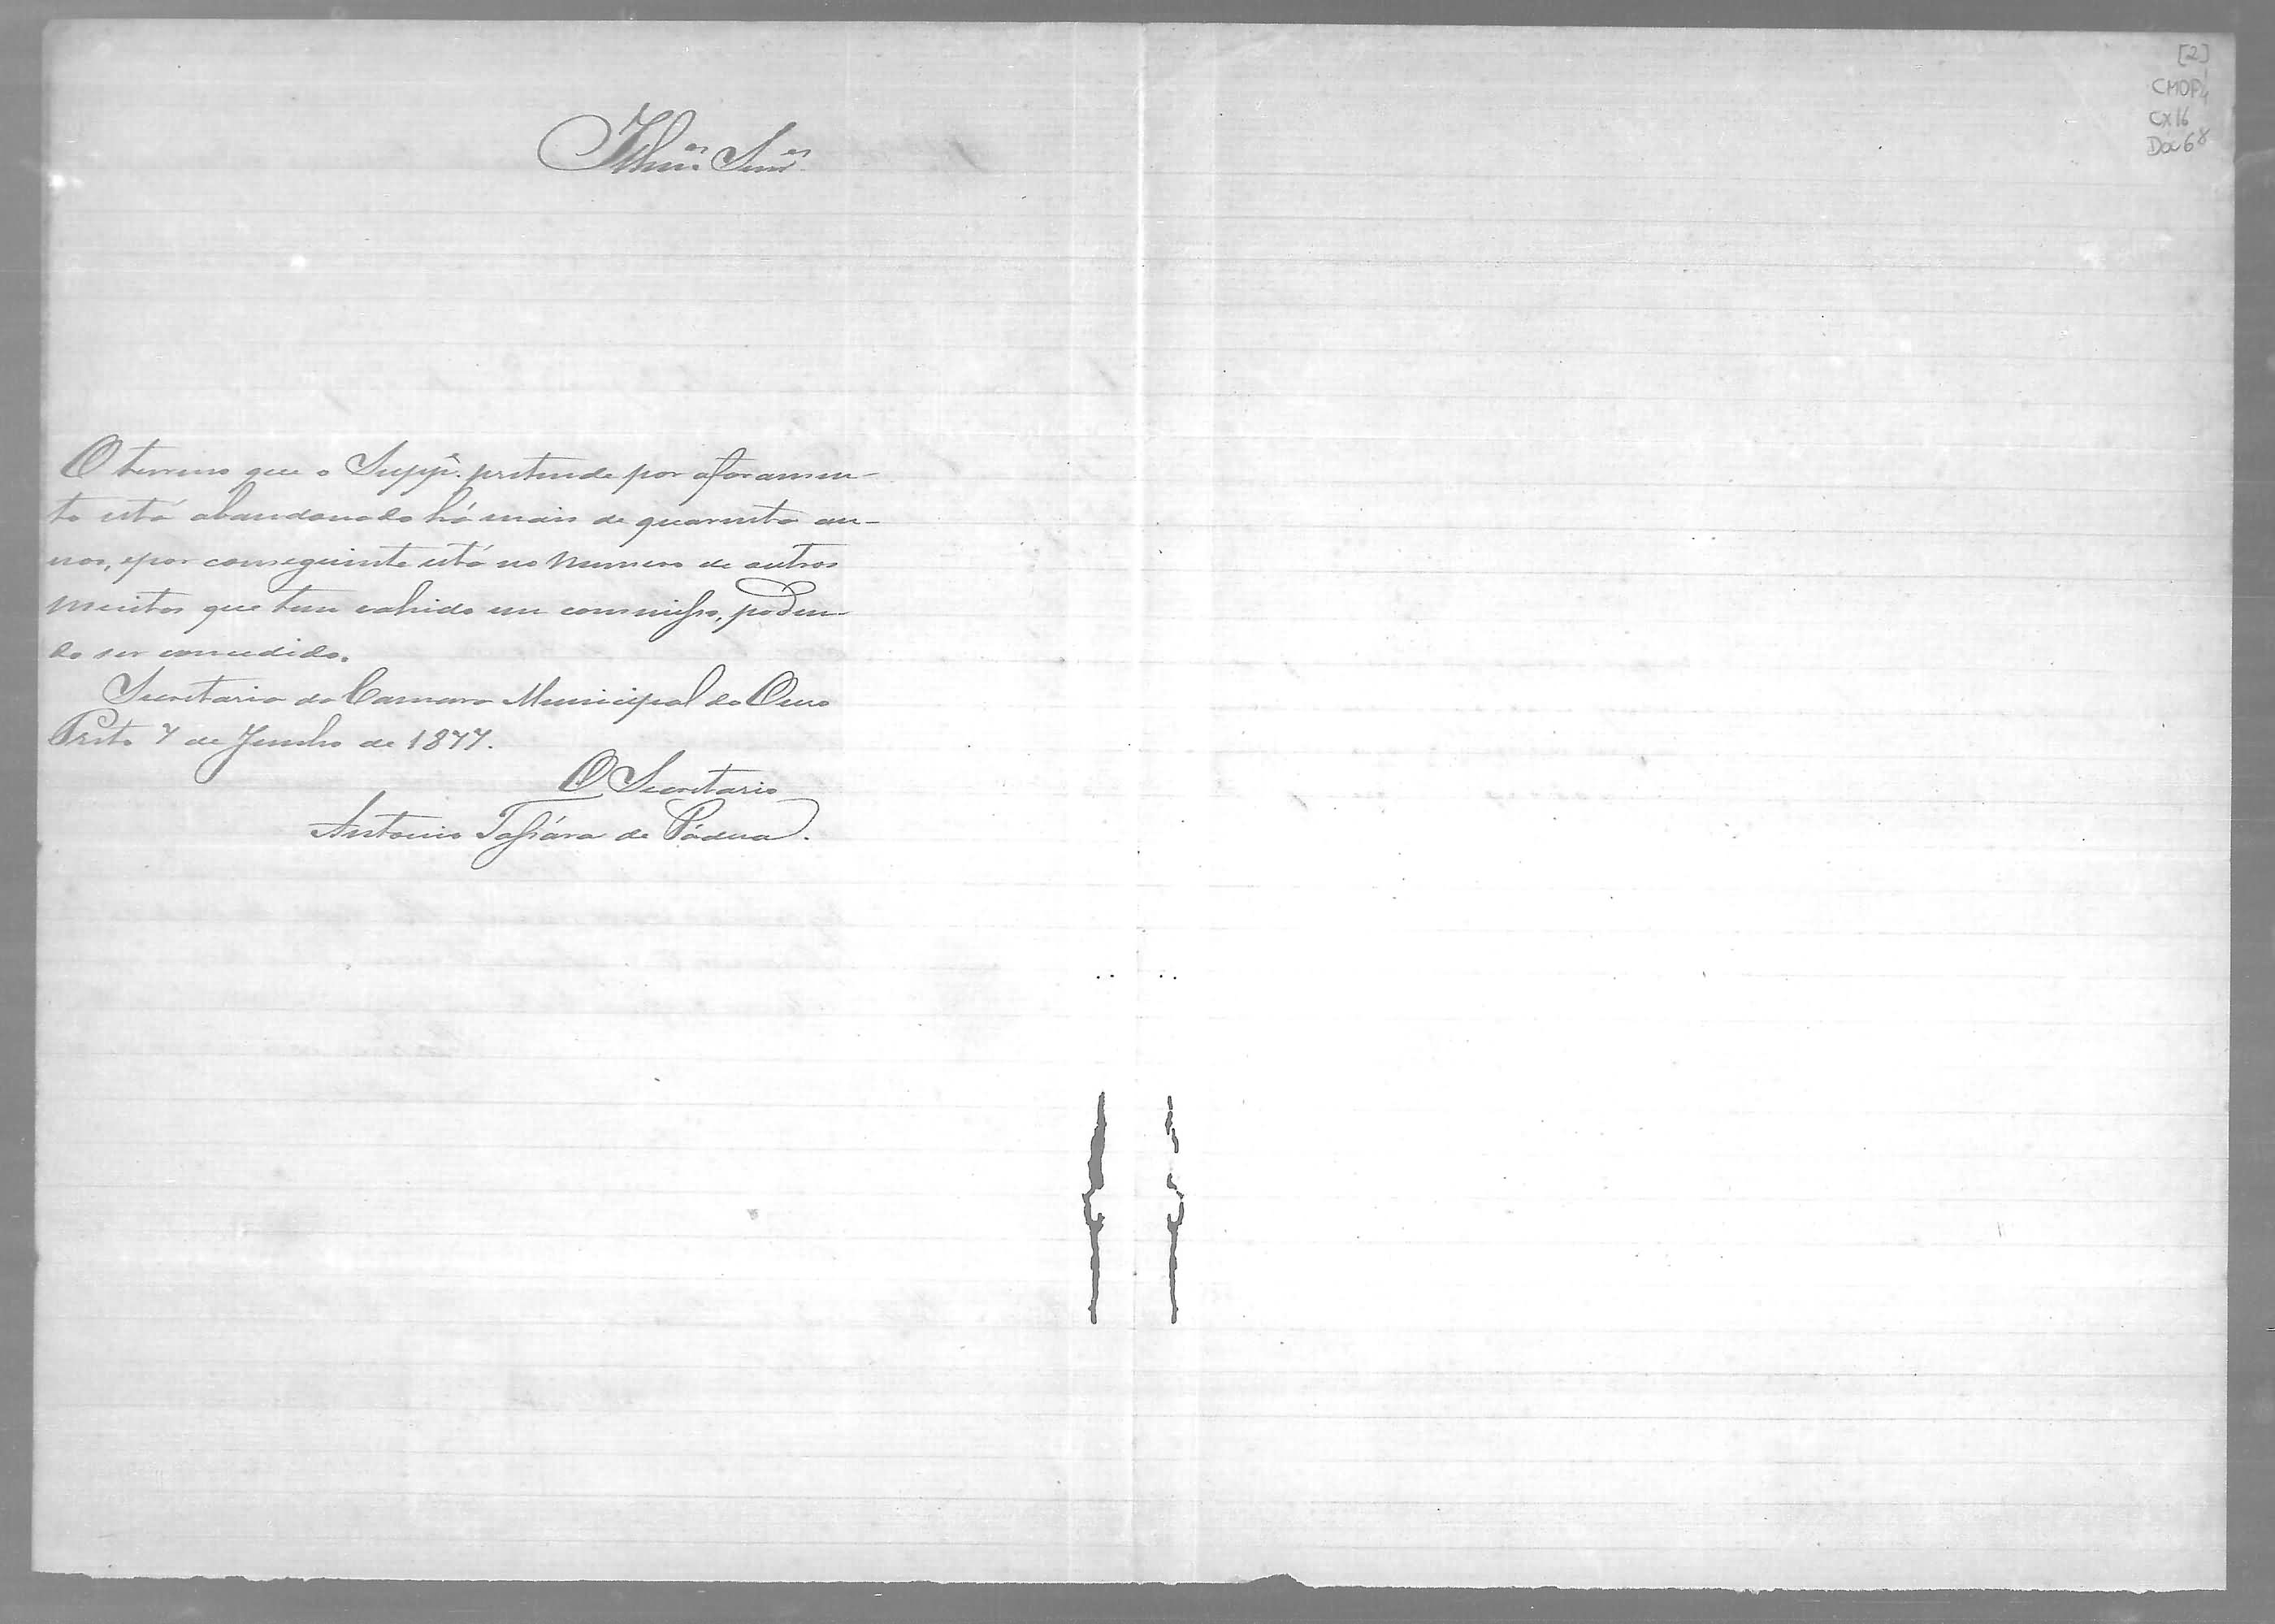 Illmos Snres
O terreno que o Suppe. pretende por aforamen-
to está abandonado há mais de quarenta an-
nos, e por conseguinte está no numero de outros
muitos que tem cahido em commisso, poden-
do ser concedido.
Secretaria da Camara Municipal do Ouro
Preto 7 de Junho de 1877.
O Secretario
Antonio de Pádua.
[2]
CMOP
CX16
Doc 68